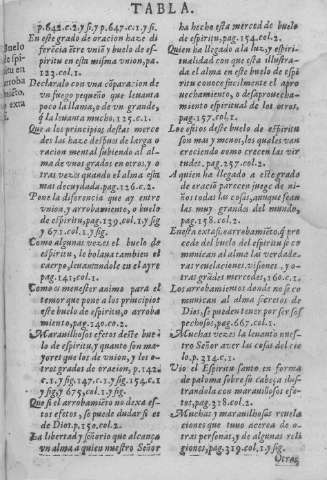 TABLA.
Buelo
de espi-
ritu en
arroba
miẽto,
p.642.c.2.y ſi.y p.647.c.1.y ſi.
En eſte grado de oracion haze di
ferẽcia ẽtre vniõ y buelo de eſ-
piritu en eſta miſma vnion, pa.
123.col.1.
Declaralo con vna cõparacion de
vn fuego pequeño que leuanta
poco la llama, o de vn grande,
q̃ la leuanta mucho.125.c.1.
Que a los principios deſtas merce
des las haze deſpues de larga o
racion mental ſubiendo al al-
ma de vnos grados en otros, y o
tras vezes quando el alma eſta
mas decuydada.pag.126.c.2.
Pone la diferencia que ay entre
vnion, y arrobamiento, o buelo
de eſpiritu, pag.129.col.1.y ſig
y 671.col.1.y ſig.
Como algunas vezes el buelo de
eſpiritu, le bolaua tambien el
cuerpo, leuantandole en el ayre
pag.141.col.1.
Como es meneſter animo para el
temor que pone a los principios
eſte buelo de eſpiritu, o arroba
miento, pag.142.co.2.
Marauilloſos efetos deſte bue-
lo de eſpiritu, y quanto ſon ma-
yores que los de vnion, y los o-
tros grados de oracion, p.142.
c.1.y ſig.147.c.1.y ſig.154.c.1
y ſig.y 675, col.1.y ſig.
Que ſi el arrobamiẽto no dexa eſ-
tos efetos, ſe puede dudar ſi es
de Dios.p.150.col.2.
La libertad y ſeñorio que alcança
vn alma a quien nueſtro Señor
ha hecho eſta merced de buelo
de eſpiritu, pag.154.col.2.
Quien ha llegado a la luz, y eſpiri-
tualidad con que eſta illuſtra-
da el alma en eſte buelo de eſpi
ritu conoce facilmente el apro
uechamiento, o deſaprouecha-
miento eſpiritual de los otros,
pag.157.col.1.
Los efetos deſte buelo de eſpiritu
ſon mas y menos, los quales van
creciendo como crecen las vir
tudes.pag.257.col.2.
A quien ha llegado a eſte grado
de oraciõ parecen juego de ni-
ños todas las coſas, aunque ſean
las muy grandes del mundo,
pag.158.col.2.
En eſta extaſi o arrobamiẽto, q̃ pro
cede del buelo del eſpiritu ſe co
munican al alma las verdade-
ras reuelaciones, viſiones, y o-
tras grãdes mercedes, 160.c.1.
Los arrobamientos donde no ſe co
munican al alma ſecretos de
Dios, ſe pueden tener por ſer ſoſ
pechoſos, pag.667.col.1.
Muchas vezes la leuanto nueſ-
tro Señor a ver las coſas del cie
lo.p.214.c.1.
Vio el Eſpiritu ſanto en forma
de paloma ſobre ſu cabeça iluſ-
trandola con marauilloſos efe-
tos, pag.318.col.2.
Muchas y marauilloſas reuela
ciones que tuuo acerca de o-
tras perſonas, y de algunas reli
giones, pag.319.col.1.y ſig.
Otras